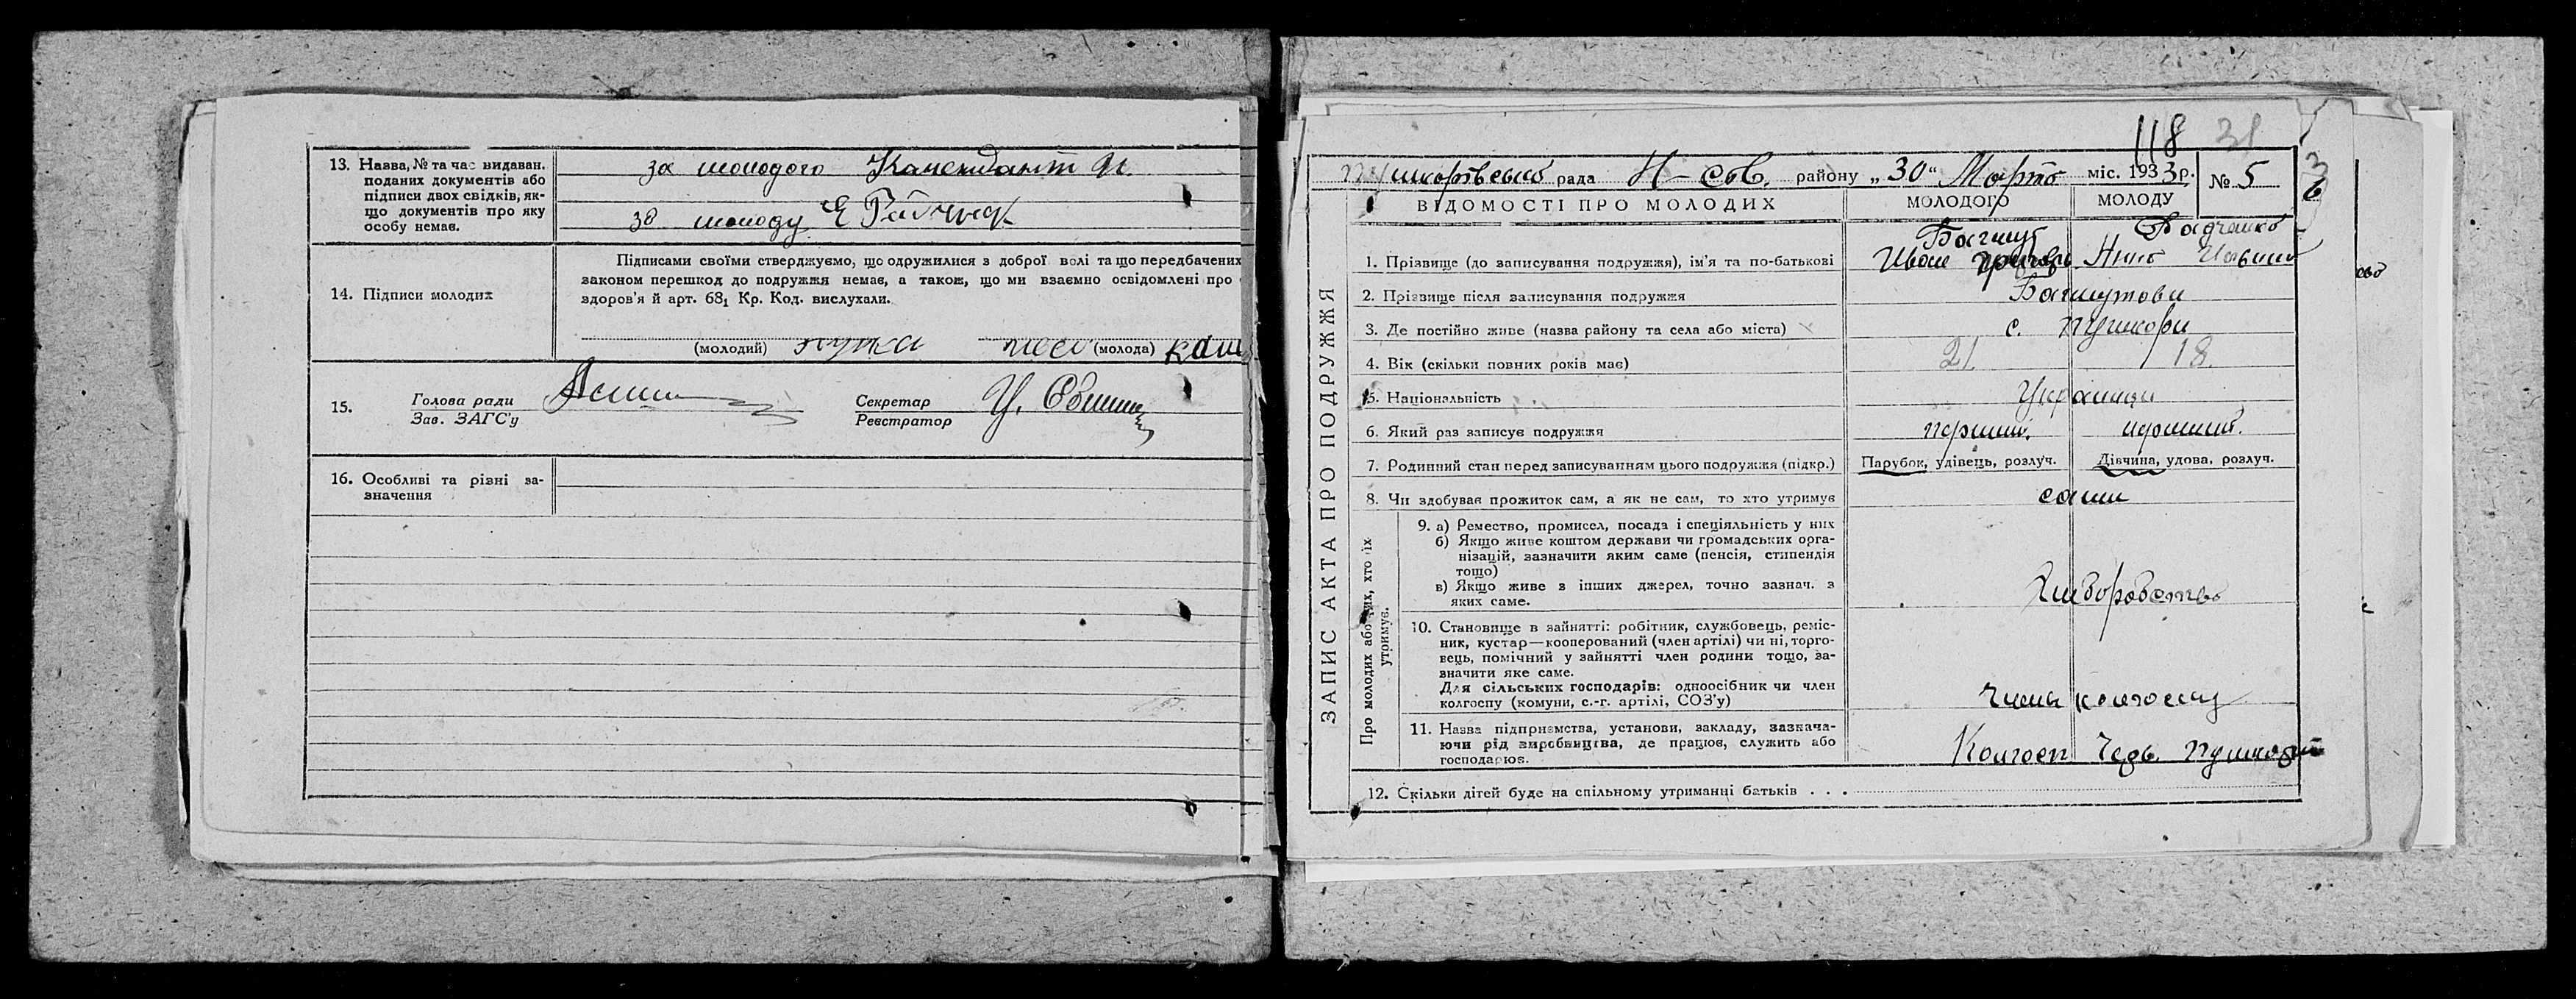 13. Назва, № та час видаван.
поданих документів або
підписи двох свідків, як-
що документів про яку
особу немає.
за молодого Комендант И.
за молоду Е
14. Підписи молодих
Підписами своїми стверджуємо, що одружилися з доброї волі та що передбачених
законом перешкод до подружжя немає, а також, що ми взаємно освідомлені про
здоров'я й арт. 68₁ Кр. Код. вислухали.
(молодий) (молода)
15. Голова ради
Зав. ЗАГС'у
Секретар
Реєстратор
16. Особливі та різні за-
значення
118 31
Пушкарівська рада Н-Сів. району „30" Марта міс. 1933 р. № 5
36
ЗАПИС АКТА ПРО ПОДРУЖЖЯ
ВІДОМОСТІ ПРО МОЛОДИХ МОЛОДОГО МОЛОДУ
Багмут Радченко
1. Прізвище (до записування подружжя), ім'я та по-батькові Иван Григор Анна
2. Прізвище після записування подружжя Багмутови
3. Де постійно живе (назва району та села або міста) с. Пушкарі
4. Вік (скільки повних років має) 21 18
5. Національність Українци
6. Який раз записує подружжя перший. перший.
7. Родинний стан перед записуванням цього подружжя (підкр.) Парубок, удівець, розлуч. Дівчина, удова, розлуч.
8. Чи здобував прожиток сам, а як не сам, то хто утримує сами
Про молодих або тих, хто їх
утримує.
9. а) Ремество, промисел, посада і спеціяльність у них
б) Якщо живе коштом держави чи громадських орга-
нізацій, зазначити яким саме (пенсія, стипендія
тощо)
в) Якщо живе з інших джерел, точно зазнач. з
яких саме.
Хліборобство
10. Становище в зайнятті: робітник, службовець, реміс-
ник, кустар—кооперований (член артілі) чи ні, торго-
вець, помічний у зайнятті член родини тощо, за-
значити яке саме.
Для сільських господарів: одноосібник чи член
колгоспу (комуни, с.-г. артілі, СОЗ'у)
Члени колгоспу
11. Назва підприємства, установи, закладу, зазнача-
ючи рід виробництва, де працює, служить або
господарює.
Колгосп Черв. Пушкарі
12. Скільки дітей буде на спільному утриманні батьків . . .